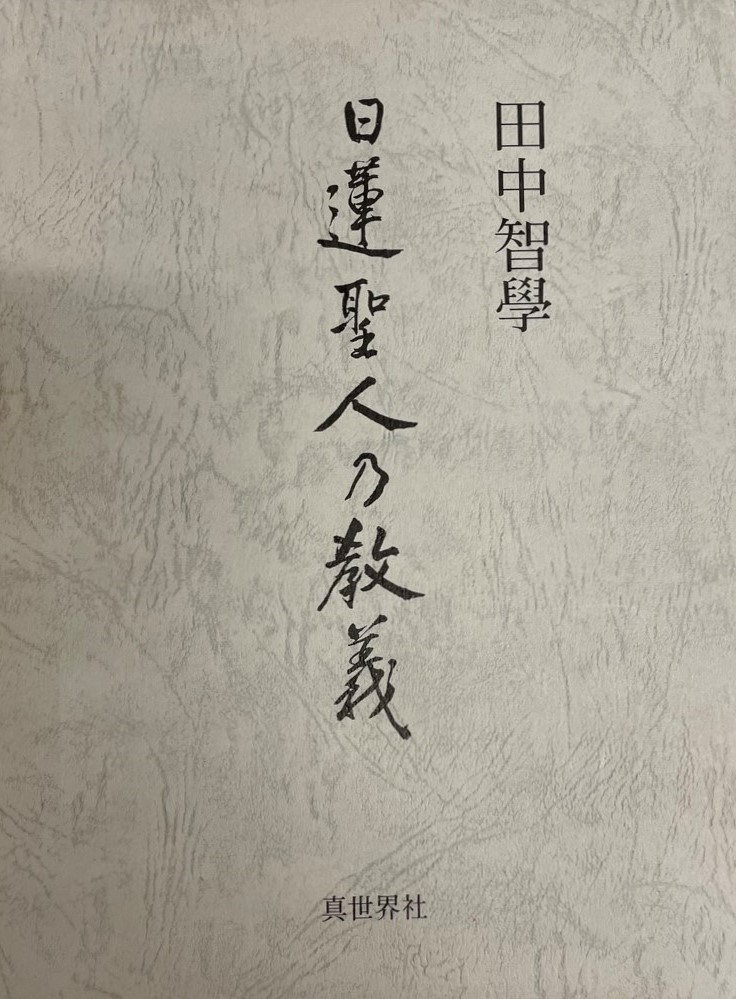 田中智學
日蓮聖人乃教義
真世界社